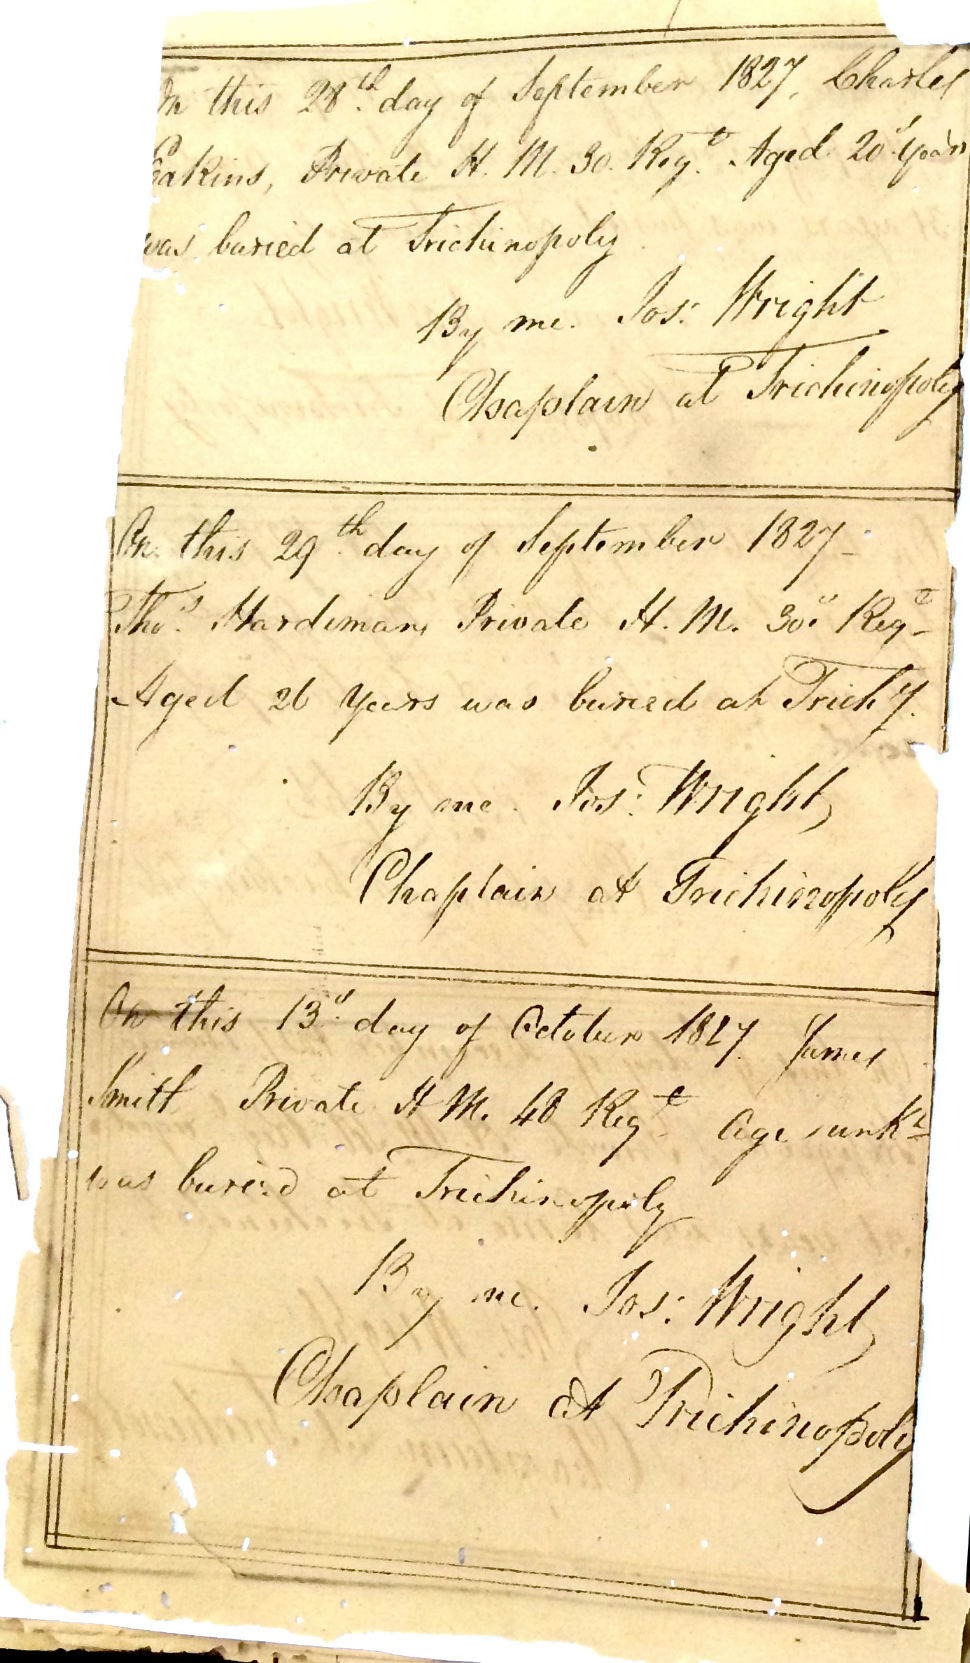 On this 28th. day of September 1827, Charles
Eakins, Private H. M. 30. Regt. Aged 20 Years
was buried at Trichinopoly
By me. Jos: Wright
Chaplain at Trichinopoly
On this 29th. day of September 1827
Thos. Hardiman Private H. M. 30d. Regt
Aged 26 Years was buried at Trichy.
By me. Jos: Wright
Chaplain at Trichinopoly
On this 13d. day of October 1827. James
Smith Private H M. 48 Regt Age
was buried at Trichinopoly
By me. Jos: Wright
Chaplain at Trichinopoly